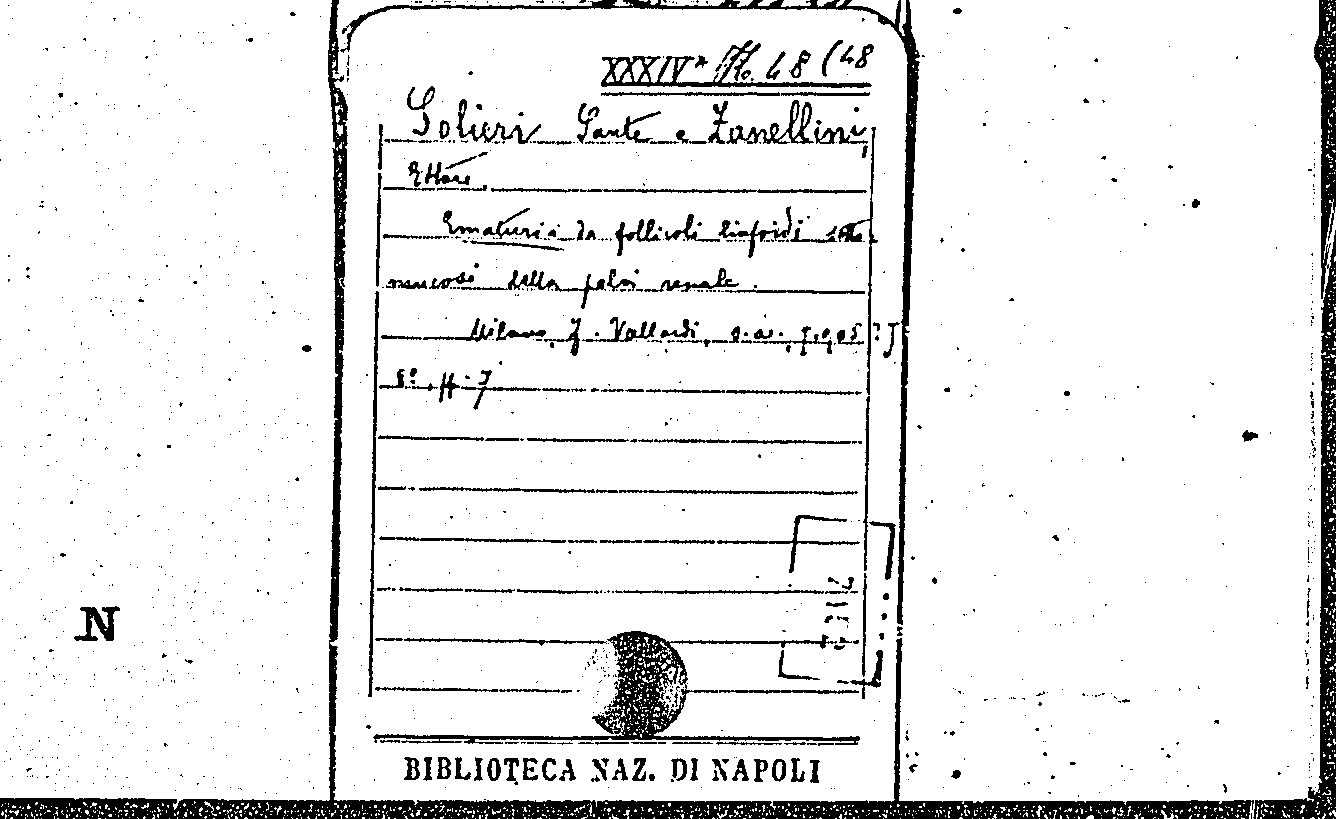 XXXIV* 48 (48
Solieri Sante e Zanellini,
Ettore.
Ematuria da follicoli linfoidi sotto
mucosi della pelvi renale.
Milano, F. Vallardi, s.a., [1905?]
8º.
N
BIBLIOTECA NAZ. DI NAPOLI